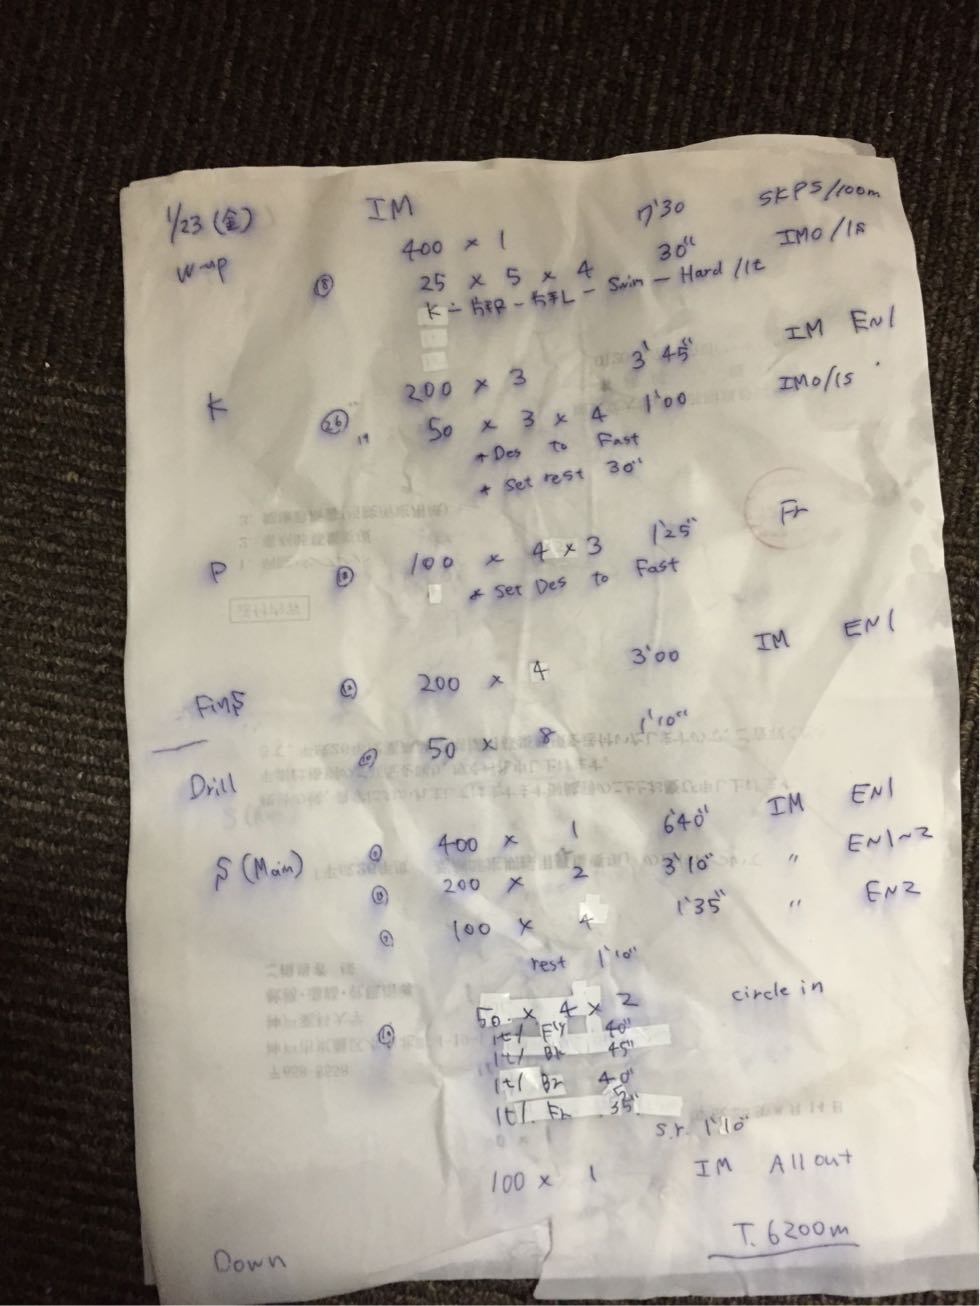 1/23 (金) IM
W-up 400 × 1 7'30 SKPS/100m
⑧ 25 × 5 × 4 30" IMO/1s
K - 片手R - 片手L - Swim - Hard /1t
K 200 × 3 3'45" IM EN1
㉖ 50 × 3 × 4 1'00 IMO/1s
* Des to Fast
* Set rest 30"
P ⑱ 100 × 4 × 3 1'25" Fr
* Set Des to Fast
FinS ⑫ 200 × 4 3'00 IM EN1
Drill 50 × 8 1'10"
S (Main) 400 × 1 6'40" IM EN1
200 × 2 3'10" " EN1~2
100 × 4 1'35" " EN2
rest 1'10"
50 × 4 × 2 circle in
1t/ Fly 40"
1t/ 45"
1t/ Br 40"
1t/ Fr 35"
S.r. 1'10"
100 × 1 IM All out
T. 6200m
Down